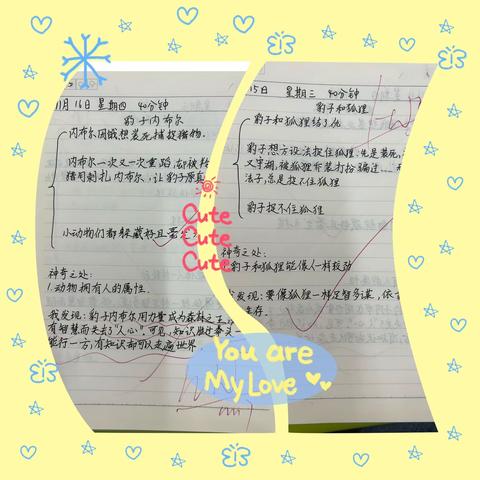 11月16日 星期四 40分钟
豹子内布尔
内布尔因饿想装死捕捉猎物.
内布尔一次又一次重蹈
猪用刺扎内布尔,让豹子原
小动物们都躲藏好且
神奇之处:
1.动物拥有人的属性.
我发现:豹子内布尔用力量成为森林之王
有智慧而失去了"人心".可见,知识胜过
能行一方,有知识却可以走遍世界
15日 星期三 40分钟
豹子和狐狸
豹子和狐狸结了仇
豹子想方设法捉住狐狸.先是装死,
又守湖,被狐狸乔装打扮骗过……
法子,总是捉不住狐狸
豹子捉不住狐狸
神奇之处:
豹子和狐狸能像人一样
发现:要像狐狸一样足智多谋,
生存.
Cute
Cute
Cute
You are
My Love